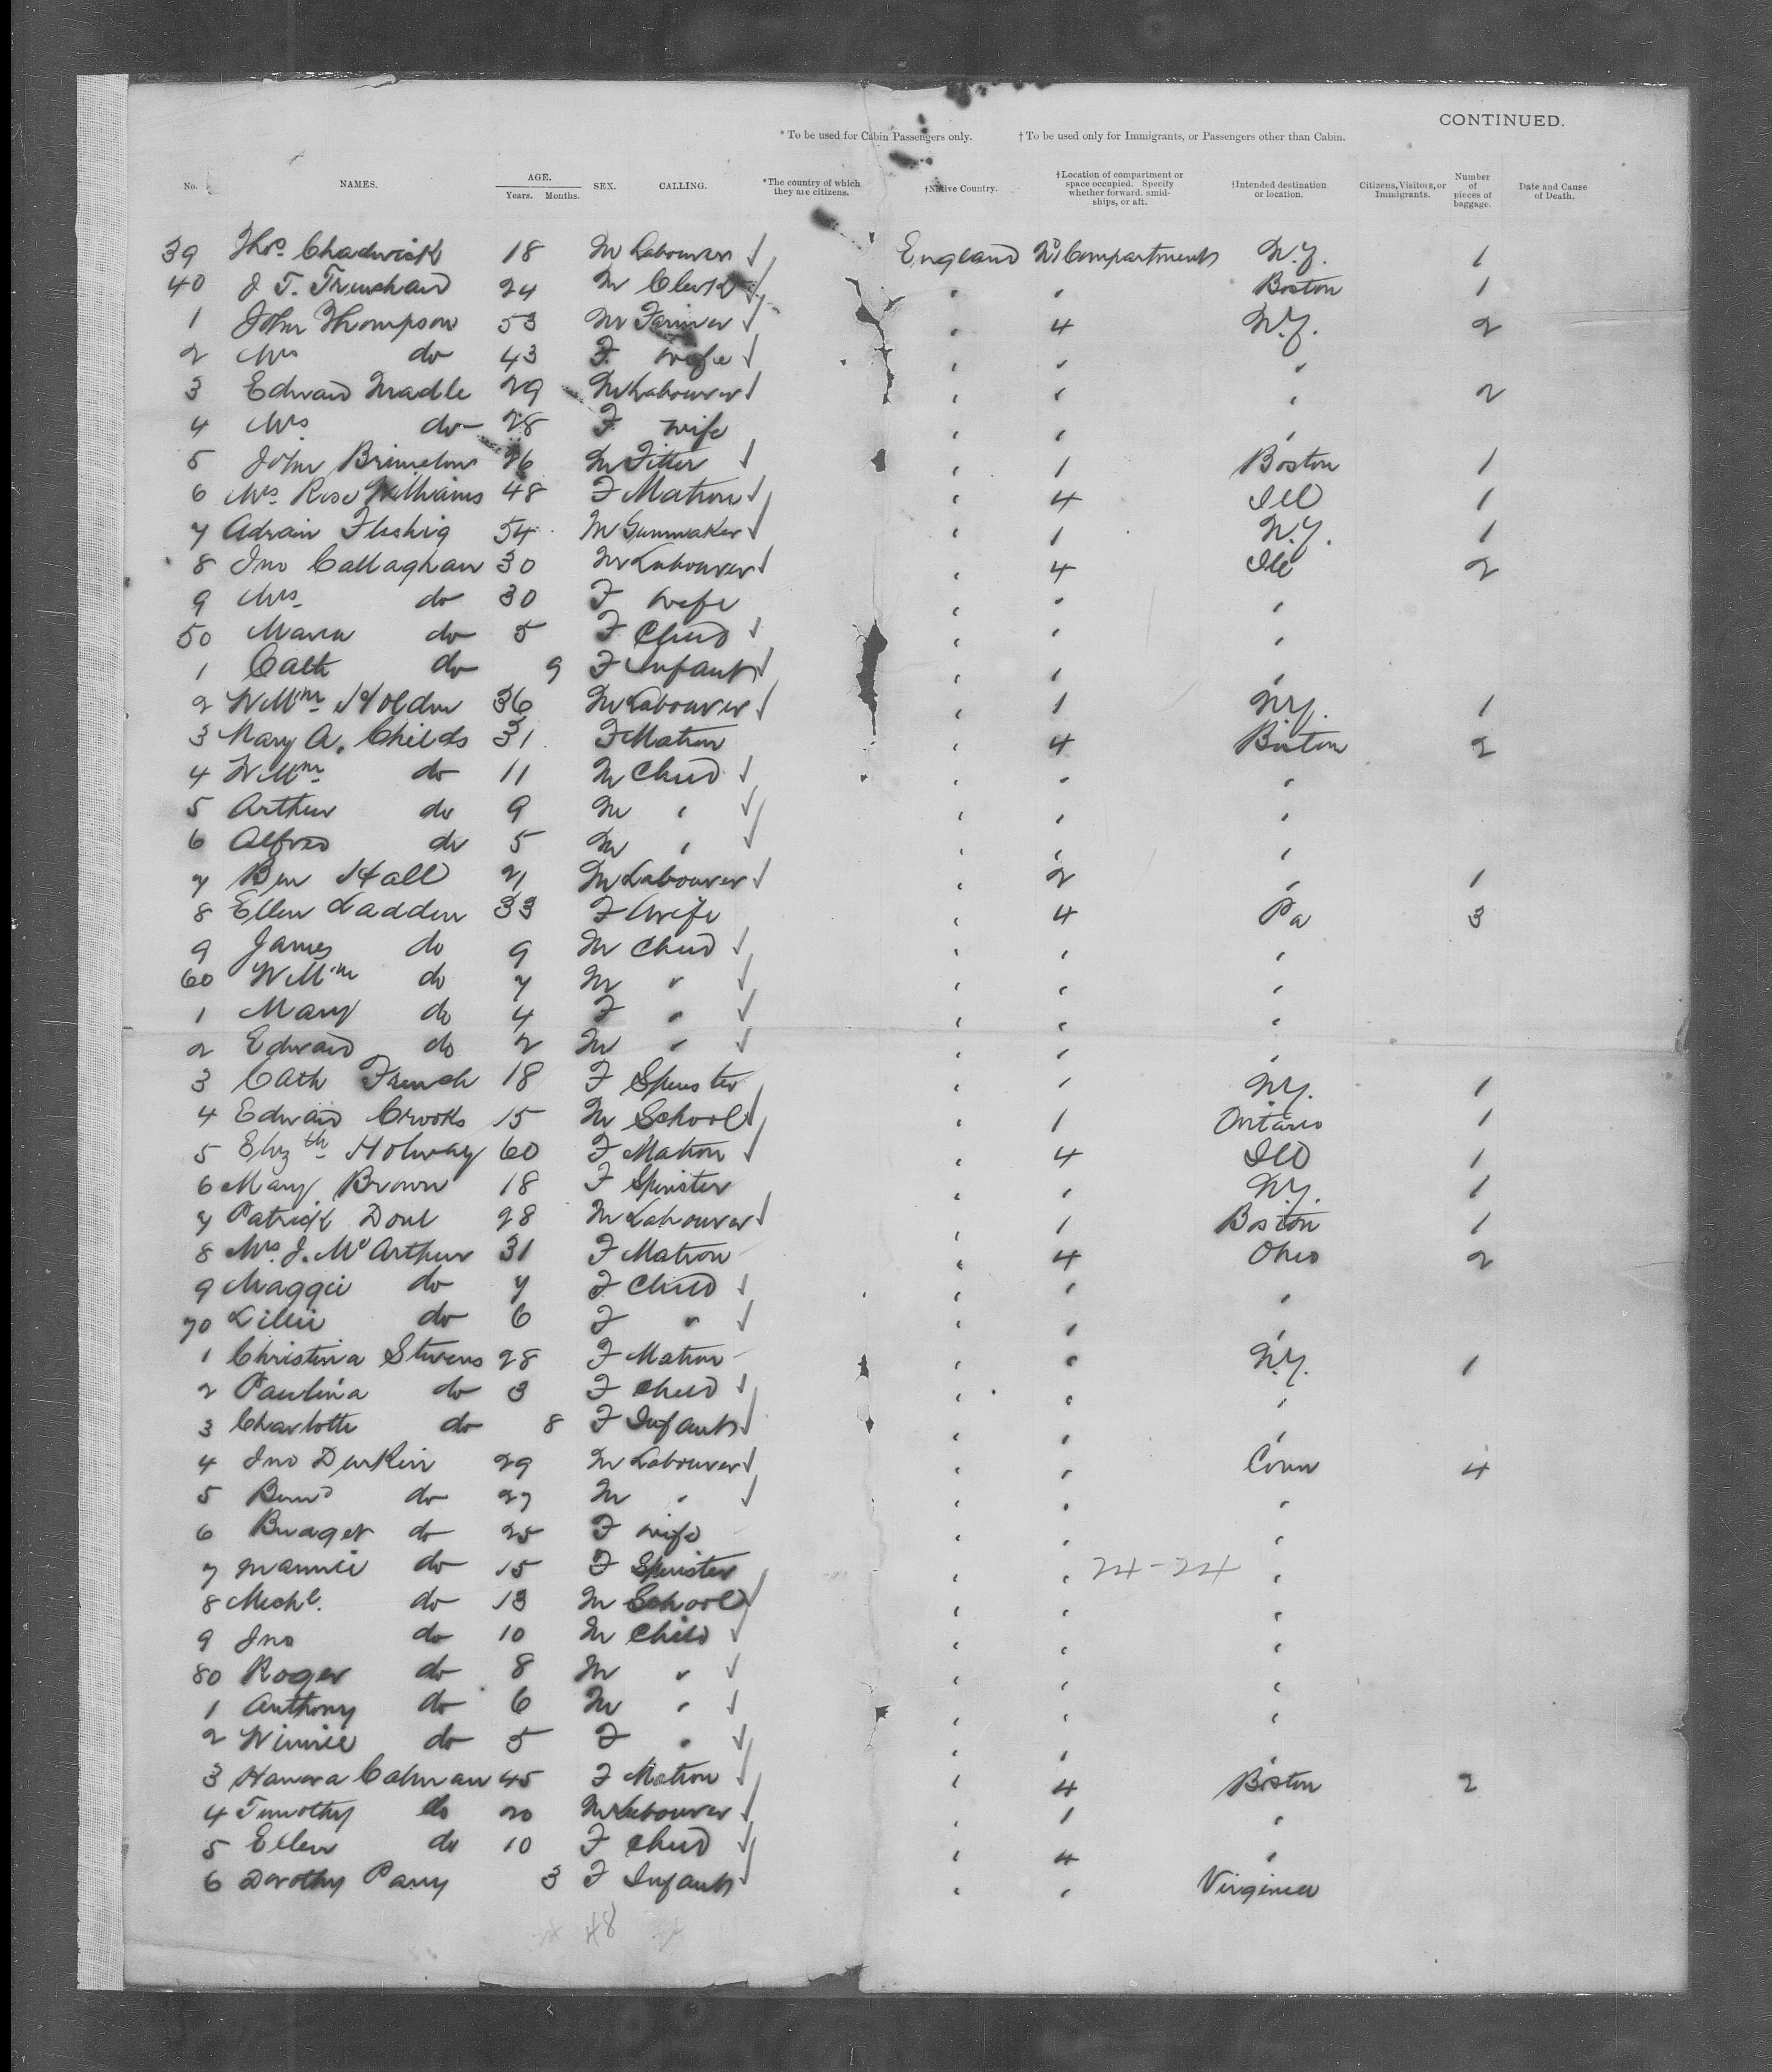 CONTINUED.
* To be used for Cabin Passengers only. † To be used only for Immigrants, or Passengers other than Cabin.
No. NAMES. AGE. Years. Months. SEX. CALLING. *The country of which they are citizens. †Native Country. †Location of compartment or space occupied. Specify whether forward, amidships, or aft. †Intended destination or location. Citizens, Visitors, or Immigrants. Number of pieces of baggage. Date and Cause of Death.
39 Thos. Chadwick 18 M Labourer England No 1 Compartment N.Y. 1
40 J. T. Trenchard 24 M Clerk " " Boston 1
1 John Thompson 53 M Farmer " 4 N.Y. 2
2 Mrs do 43 F wife " " "
3 Edward Madle 29 M Labourer " " " 2
4 Mrs do 28 F wife " " "
5 John Brimelow 26 M Fitter " 1 Boston 1
6 Mrs Rose Williams 48 F Matron " 4 Ill 1
7 Adrain 54 M Gunmaker " 1 N.Y. 1
8 Jno Callaghan 30 M Labourer " 4 Ill 2
9 Mrs do 30 F wife " " "
50 Maria do 5 F Child " " "
1 Cath do 9 F Infant " " "
2 Willm Holden 36 M Labourer " 1 N.Y. 1
3 Mary A. Childs 31 F Matron " 4 Boston 2
4 Willm do 11 M Child " " "
5 Arthur do 9 M " " " "
6 Alfred do 5 M " " " "
7 Ben Hall 21 M Labourer " 2 " 1
8 Ellen Ladden 33 F Wife " 4 Pa 3
9 James do 9 M Child " " "
60 Willm do 7 M " " " "
1 Mary do 4 F " " " "
2 Edward do 2 M " " " "
3 Cath French 18 F Spinster " " N.Y. 1
4 Edward Crooks 15 M School " 1 Ontario 1
5 Elizth Holway 60 F Matron " 4 Ill 1
6 Mary Brown 18 F Spinster " " N.Y. 1
7 Patrick 28 M Labourer " 1 Boston 1
8 Mrs. J. McArthur 31 F Matron " 4 Ohio 2
9 Maggie do 7 F Child " " "
70 Lillie do 6 F " " " "
1 Christina Stevens 28 F Matron " " N.Y. 1
2 Paulina do 3 F Child " " "
3 Charlotte do 8 F Infant " " "
4 Jno Durkin 29 M Labourer " " Conn 4
5 do 27 M " " " "
6 Bridget do 25 F wife " " "
7 Mannie do 15 F Spinster " " 24-24 "
8 Michl. do 13 M School " " "
9 Jno do 10 M Child " " "
80 Roger do 8 M " " " "
1 Anthony do 6 M " " " "
2 Winnie do 5 F " " " "
3 Hanora Calman 45 F Matron " 4 Boston 2
4 Timothy do 20 M Labourer " 1 "
5 Ellen do 10 F Child " 4 "
6 Dorothy Parry 3 F Infant " " Virginia
48